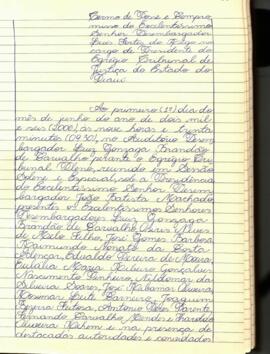 Termo de Posse e Compro-
misso do Excelentíssimo
Senhor Desembargador
Luiz
cargo de Presidente do
Egrégio Tribunal de
Justiça do Estado do
Piauí.
Ao primeiro (1º) dia do
mês de junho do ano de dois mil
e seis (2006), às nove horas e trinta
minutos (09:30), no Auditório Desem-
bargador Luiz Gonzaga Brandão
de Carvalho, perante o Egrégio Tri-
bunal Pleno, reunido em Sessão
Solene e Especial, sob a Presidência
do Excelentíssimo Senhor Desem-
bargador João Batista Machado
presentes os Excelentíssimos Senhores
Desembargadores Luiz Gonzaga
Brandão de Carvalho, Osiris Neves
de Melo Filho, José Gomes Barbosa
Raimundo Nonato da Costa
Alencar, Edvaldo Pereira de Moura,
Eulália Maria Ribeiro Gonçalves
Nascimento Pinheiro, Nildomar da
Silveira Soares, Rosimar Leite Carneiro, Joaquim
Antonio Peres Parente,
Fernando Carvalho Mendes, Haroldo
Oliveira Rehem e na presença de
destacadas autoridades e convidados